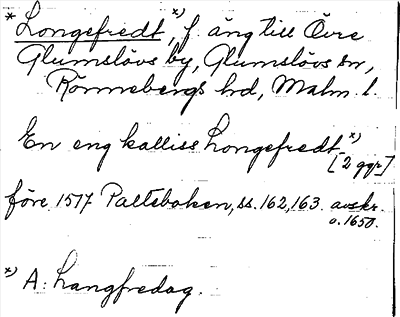 * Longefredt, x) f. äng till Övre
Glumslövs by, Glumslövs sn,
Rönnebergs hd, Malm. l.
En eng kalliss Longefredt x)
[2 ggr]
före 1577 Palteboken, ss. 162, 163. avskr.
o. 1650.
x) A: Langfredag.